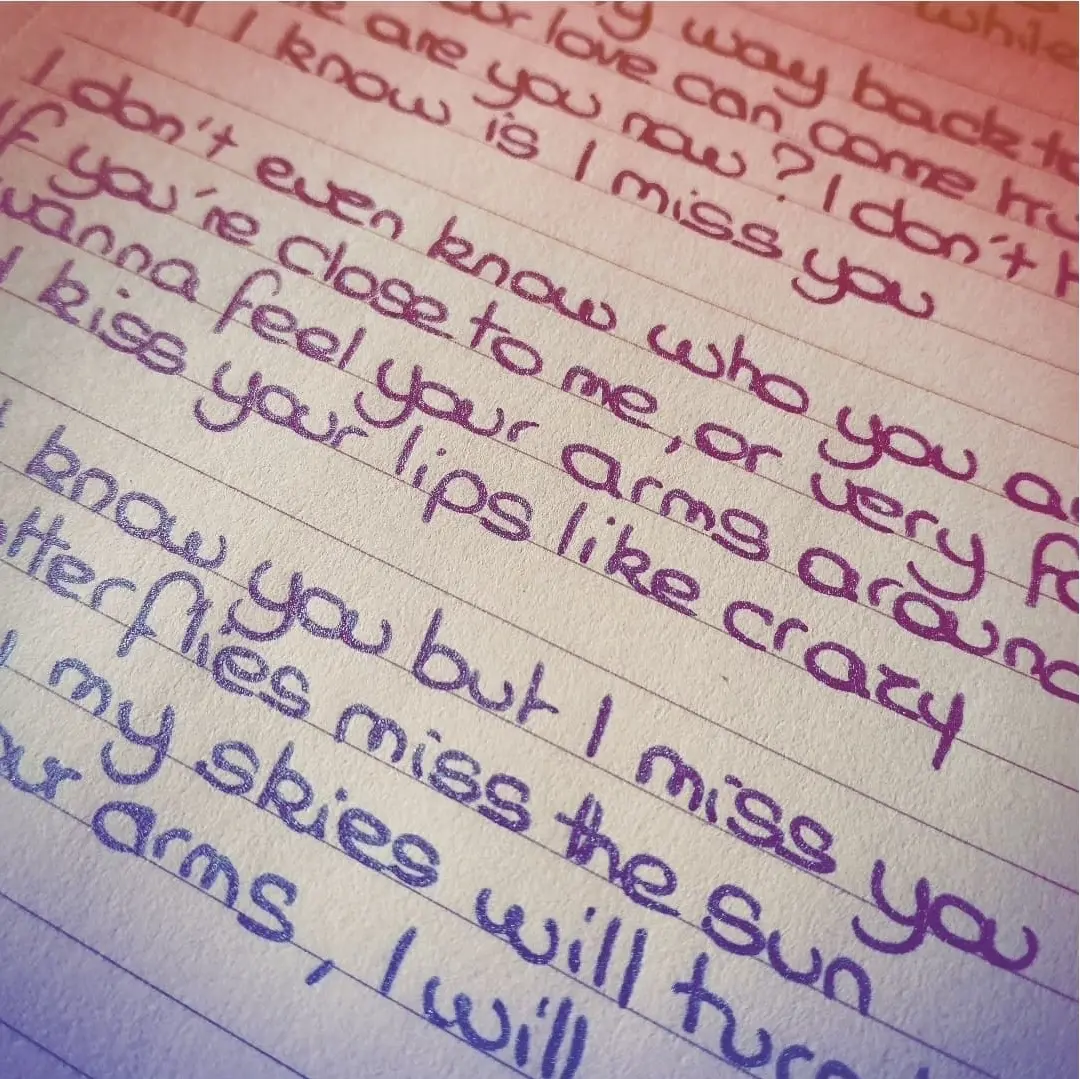 while
way back to
love can come
are you now? I don't
I know is I miss you
I don't even know who you
if you're close to me, or very
wanna feel your arms around
kiss your lips like crazy
know you but I miss you
tterflies miss the sun
my skies will turn
ur arms, I will